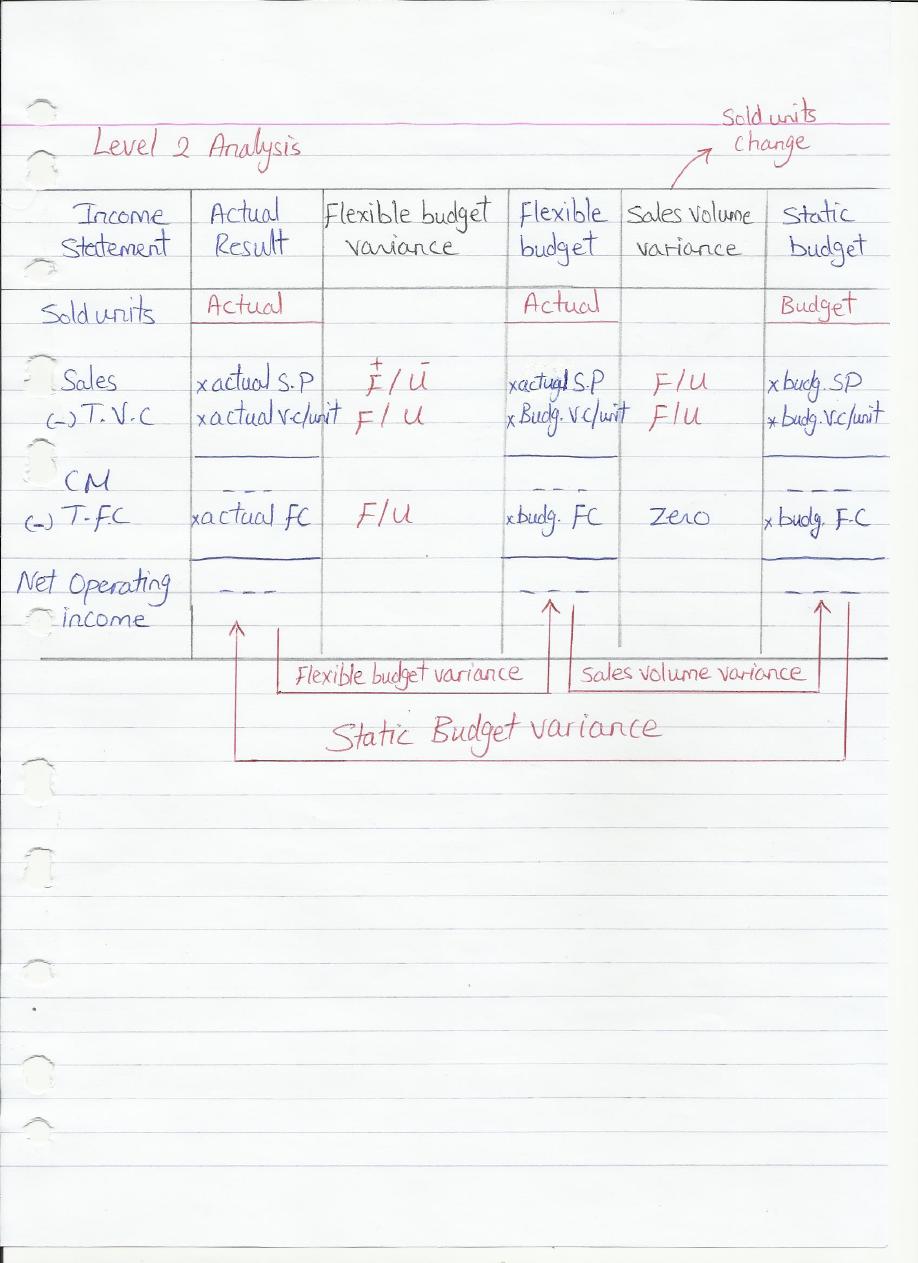 Sold units
change
Level 2 Analysis
Income Statement | Actual Result | Flexible budget variance | Flexible budget | Sales Volume variance | Static budget
Sold units | Actual | | Actual | | Budget
Sales | x actual S.P | + F / U - | x actual S.P | F/U | x budg. SP
(-) T.V.C | x actual v.c/unit | F / U | x Budg. V.C/unit | F/U | x budg. V.C/unit
CM | --- | | --- | | ---
(-) T-FC | x actual FC | F/U | x budg. FC | Zero | x budg. F-C
Net Operating income | --- | | --- | | ---
Flexible budget variance | Sales volume variance
Static Budget variance